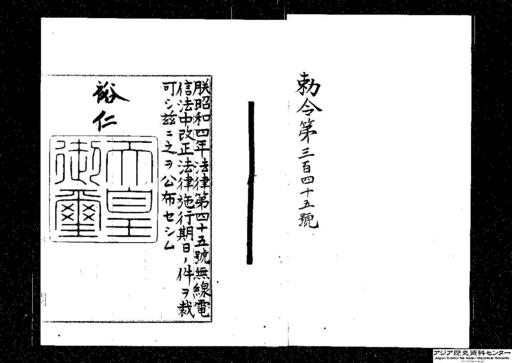 勅令第三百四十五號
朕昭和四年法律第四十五號無線電
信法中改正法律施行期日ノ件ヲ裁
可シ茲ニ之ヲ公布セシム
裕仁
天皇
御璽
アジア歴史資料センター
Japan Center for Asian Historical Records